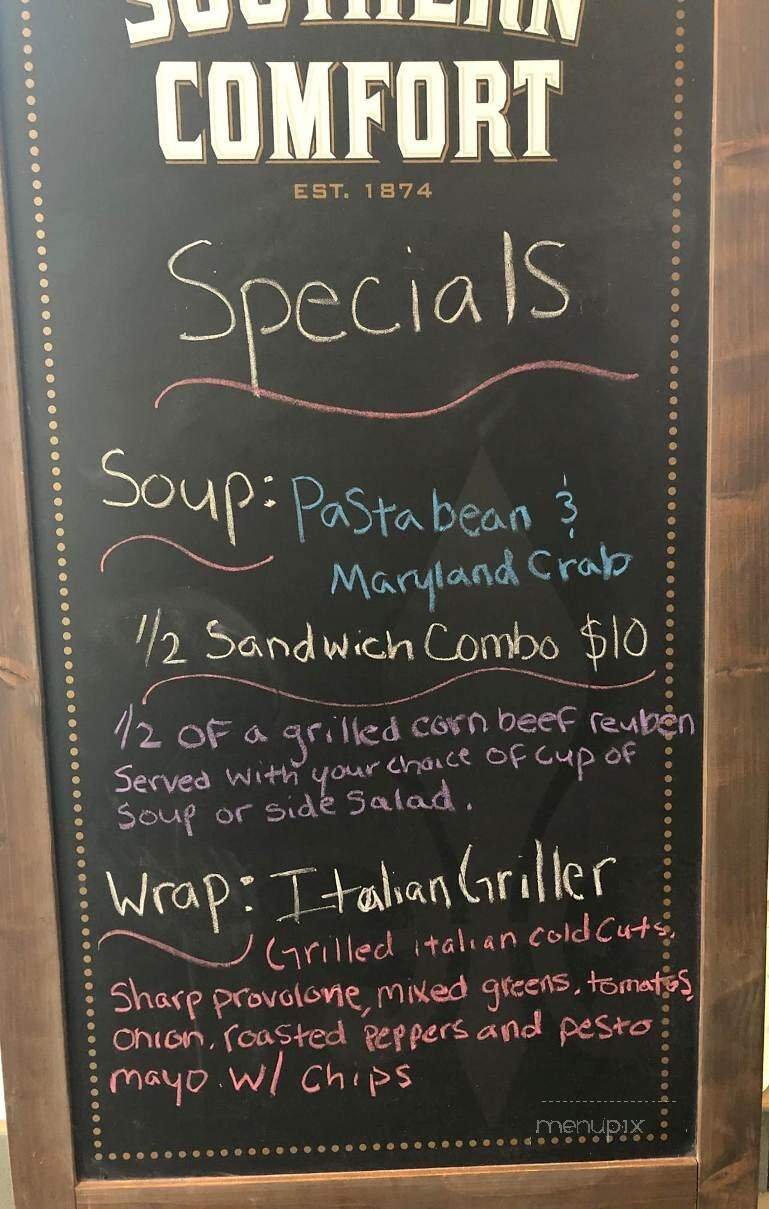 SOUTHERN
COMFORT
EST. 1874
Specials
Soup: Pasta bean &
Maryland Crab
1/2 Sandwich Combo $10
1/2 OF a grilled corn beef reuben
Served with your choice OF Cup OF
Soup or side Salad.
Wrap: Italian Griller
Grilled italian cold Cuts,
Sharp provolone, mixed greens, tomatos,
Onion, roasted peppers and pesto
mayo. W/ Chips
menupix